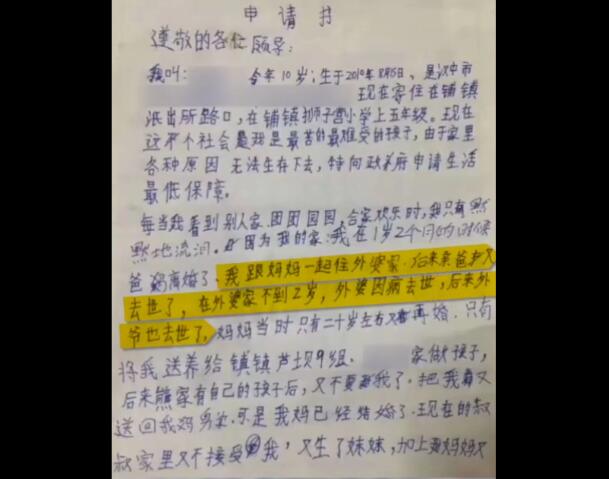 申请书
遵敬的各位领导：
我叫： 今年10岁；生于2010年8月5日、是汉中市
现在家住在铺镇
派出所路口，在铺镇狮子营小学上五年级。现在
这个社会是我是最苦的最难受的孩子，由于家里
各种原因 无法生存下去，特向政府申请生活
最低保障。
每当我看到别人家.团团园园，合家欢乐时，我只有默
默地流泪。因为我的家：我在1岁2个月的时候
爸妈离婚了、我跟妈妈一起住外婆家.后来亲爸
去世了，在外婆家不到2岁，外婆因病去世，后来外
爷也去世了，妈妈当时只有二十岁左右又再婚.只有
将我送养给镇镇芦坝9组、 家做孩子，
后来熊家有自己的孩子后，又不要我了.把我又
送回我妈身边.可是我妈已经结婚了.现在的叔
叔家里又不接受我，又生了妹妹，加上妈妈又